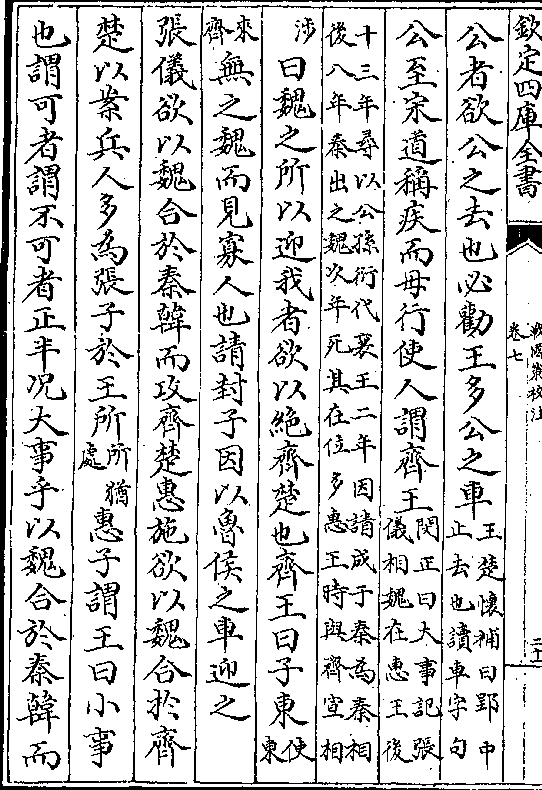 欽定四庫全書
戰國策校注
卷七
公者欲公之去也必勸王多公之車王楚懷補曰郢中正去也讀車字句
公至宋道稱疾而毋行使人謂齊王閔正曰大事記張儀相魏在惠王後
十三年尋以公孫衍代襄王二年因請成于秦為秦相
後八年秦出之魏次年死其在位多惠王時與齊宣相
涉曰魏之所以迎我者欲以絶齊楚也齊王曰子東使東
來齊無之魏而見寡人也請封子因以魯侯之車迎之
張儀欲以魏合於秦韓而攻齊楚惠施欲以魏合於齊
楚以案兵人多為張子於王所所猶處惠子謂王曰小事
也謂可者謂不可者正半况大事乎以魏合於秦韓而